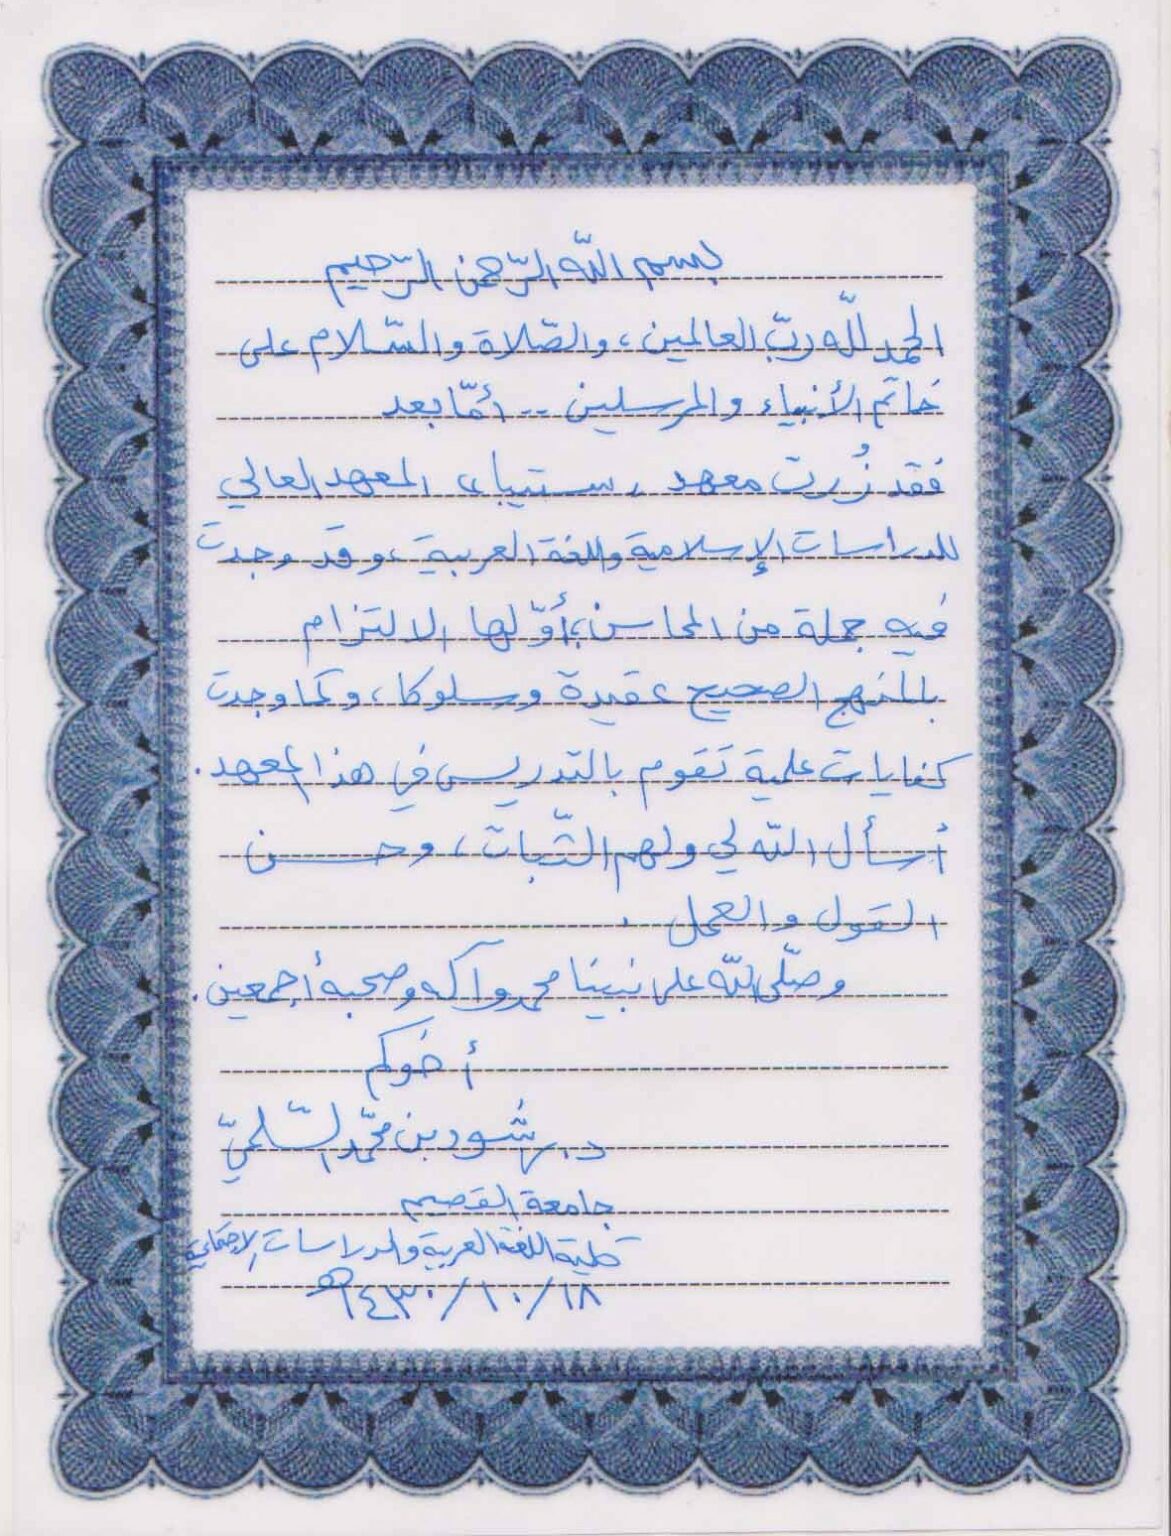 بسم الله الرّحمن الرّحيم
الحمد للّه ربّ العالمين، والصّلاة والسّلام على
خاتم الأنبياء والمرسلين -- أمّا بعد
فقد زُرت معهد المعهد العالي
للدراسات الإسلامية واللغة العربية، وقد وجدت
فيه جملة من المحاسن؛ أوّلها الالتزام
بالمنهج الصحيح عقيدة وسلوكا، وكما وجدت
كفايات علمية تقوم بالتدريس في هذا المعهد.
أسأل الله لي ولهم الثّبات، وحسن
القول والعمل.
وصلّى الله على نبينا محمد وآله وصحبه أجمعين.
أخوكم
د. بن محمّد السّلميّ
جامعة القصيم
كلية اللغة العربية والدراسات الاجتماعية
١٤٣٠/١٠/١٨هـ